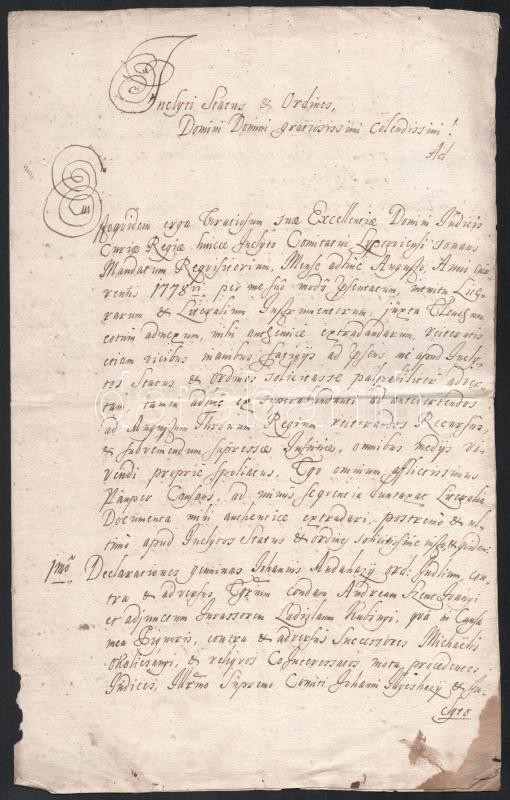 Inclyti Status & Ordines,
Domini Domini gratiosissimi Colendissimi!
Ad
erga Gratiosum suæ Excellentiæ Domini Judicis
Curiæ Regiæ huice Inclyto Comitatui Lyptoviensi sonans
Mandatum Requisitorium, Mense adhuc Augusto, Anno Cur
rentis 1778 per me modo
rarum & Literalium Instrumentorum, juxta
eotum adnexum, mihi authenice extradandarum, reiteratis
etiam vicibus manibus ad me apud Incly
tos Status & Ordines solicitasse palpabiliter
tam tamen adhuc ex
ad Augustum Thronum Regium reiteratos Recursus,
& subvemendum supressæ Justitiæ, omnibus medys vi
vendi proprie spoliatus. Ego omnium afflictissimus
Pauper Causans, ad minus sequentia duntaxat Literalia
Documenta mihi authenice extradari, postremo & ul
timo apud Inclytos Status & Ordines solicitissime
1mo Declarationes geminas Johannis Andahazy ord: Judlium, con
tra & adversus, condam Andream Szent Ivanyi
et adjunctum Jurassorem Ladislaum Rubinyi, qua in Causa
mea Pignoris, contra & adversus Successores Michaëlis
Okolicsanyi, & reliquos Cointeressatos mota, procedentes
Judices, Illrmo Supremo Comiti Johanni Illyeshazy & In
clyto